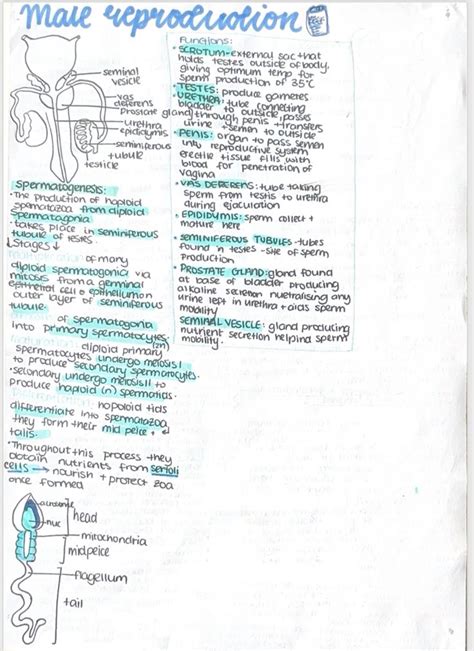 Male reproduction
seminal
vesicle
vas
deferens
Prostate gland
urethra
epididymis
seminiferous
tubule
testicle
Spermatogenesis:
• The production of haploid
spermatozoa from diploid
spermatagonia
• takes place in seminiferous
tubule of testes.
↓Stages↓
of many
diploid spermatogonia via
mitosis from a germinal
epithelial cell
outer layer of seminiferous
tubule.
of spermatogonia
into primary spermatocytes.
(2n)
diploid primary
spermatocytes undergo meiosis I
to produce secondary spermatocytes.
• secondary undergo meiosis II to
produce haploid (n) spermatids.
hapoloid tids
differentiate into spermatozoa
they form their mid peice + ↲
tails.
• Throughout this process they
obtain nutrients from sertoli
cells → nourish + protect zoa
once formed
acrosome
nuc
head
mitochondria
midpeice
flagellum
tail
Functions:
• SCROTUM - external sac that
holds testes outside of body,
giving optimum temp for
sperm production of 35°C
• TESTES: produce gametes
• URETHRA: tube connecting
bladder to outside, passes
through penis + transfers
urine + semen to outside
• PENIS: organ to pass semen
into reproductive system
erectile tissue fills with
blood for penetration of
vagina
• VAS DEFERENS: tube taking
sperm from testis to urethra
during ejaculation
• EPIDIDYMIS: sperm collect +
mature here
• SEMINIFEROUS TUBULES - tubes
found in testes - site of sperm
production
• PROSTATE GLAND: gland found
at base of bladder producing
alkaline secretion nuetralising any
urine left in urethra + aids sperm
mobility
SEMINAL VESICLE: gland producing
nutrient secretion helping sperm
mobility.